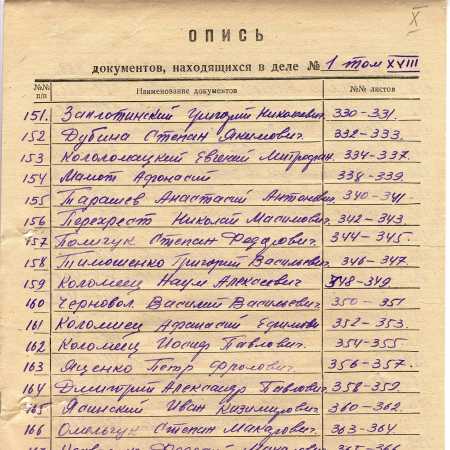 X
ОПИСЬ
документов, находящихся в деле № 1 том XVIII
№№ п/п Наименование документов №№ листов
151. Заплотинский Григорий Николаевич 330-331.
152 Дубина Степан Якимович 332-333.
153 Кологомацкий Евгений Митрофан. 334-337.
154 Мамот Афонасий 338-339.
155 Тарашев Анастасий Антонович 340-341.
156 Перехрест Николай Масимович 342-343.
157 Полищук Степан Федорович 344-345.
158 Тимошенко Григорий Васильевич 346-347.
159 Коломеец Наум Алексеевич 348-349.
160 Черновол Василий Васильевич 350-351
161 Коломиец Афанасий Ефимови 352-353.
162 Коломеец Иосиф Павлович 354-355.
163 Яценко Петр Фролович 356-357.
164 Дмитрий Александр Павлович 358-359.
165 Ясинский Иван Казимирович 360-362.
166 Омельчук Степан Макарович 363-364.
365-366